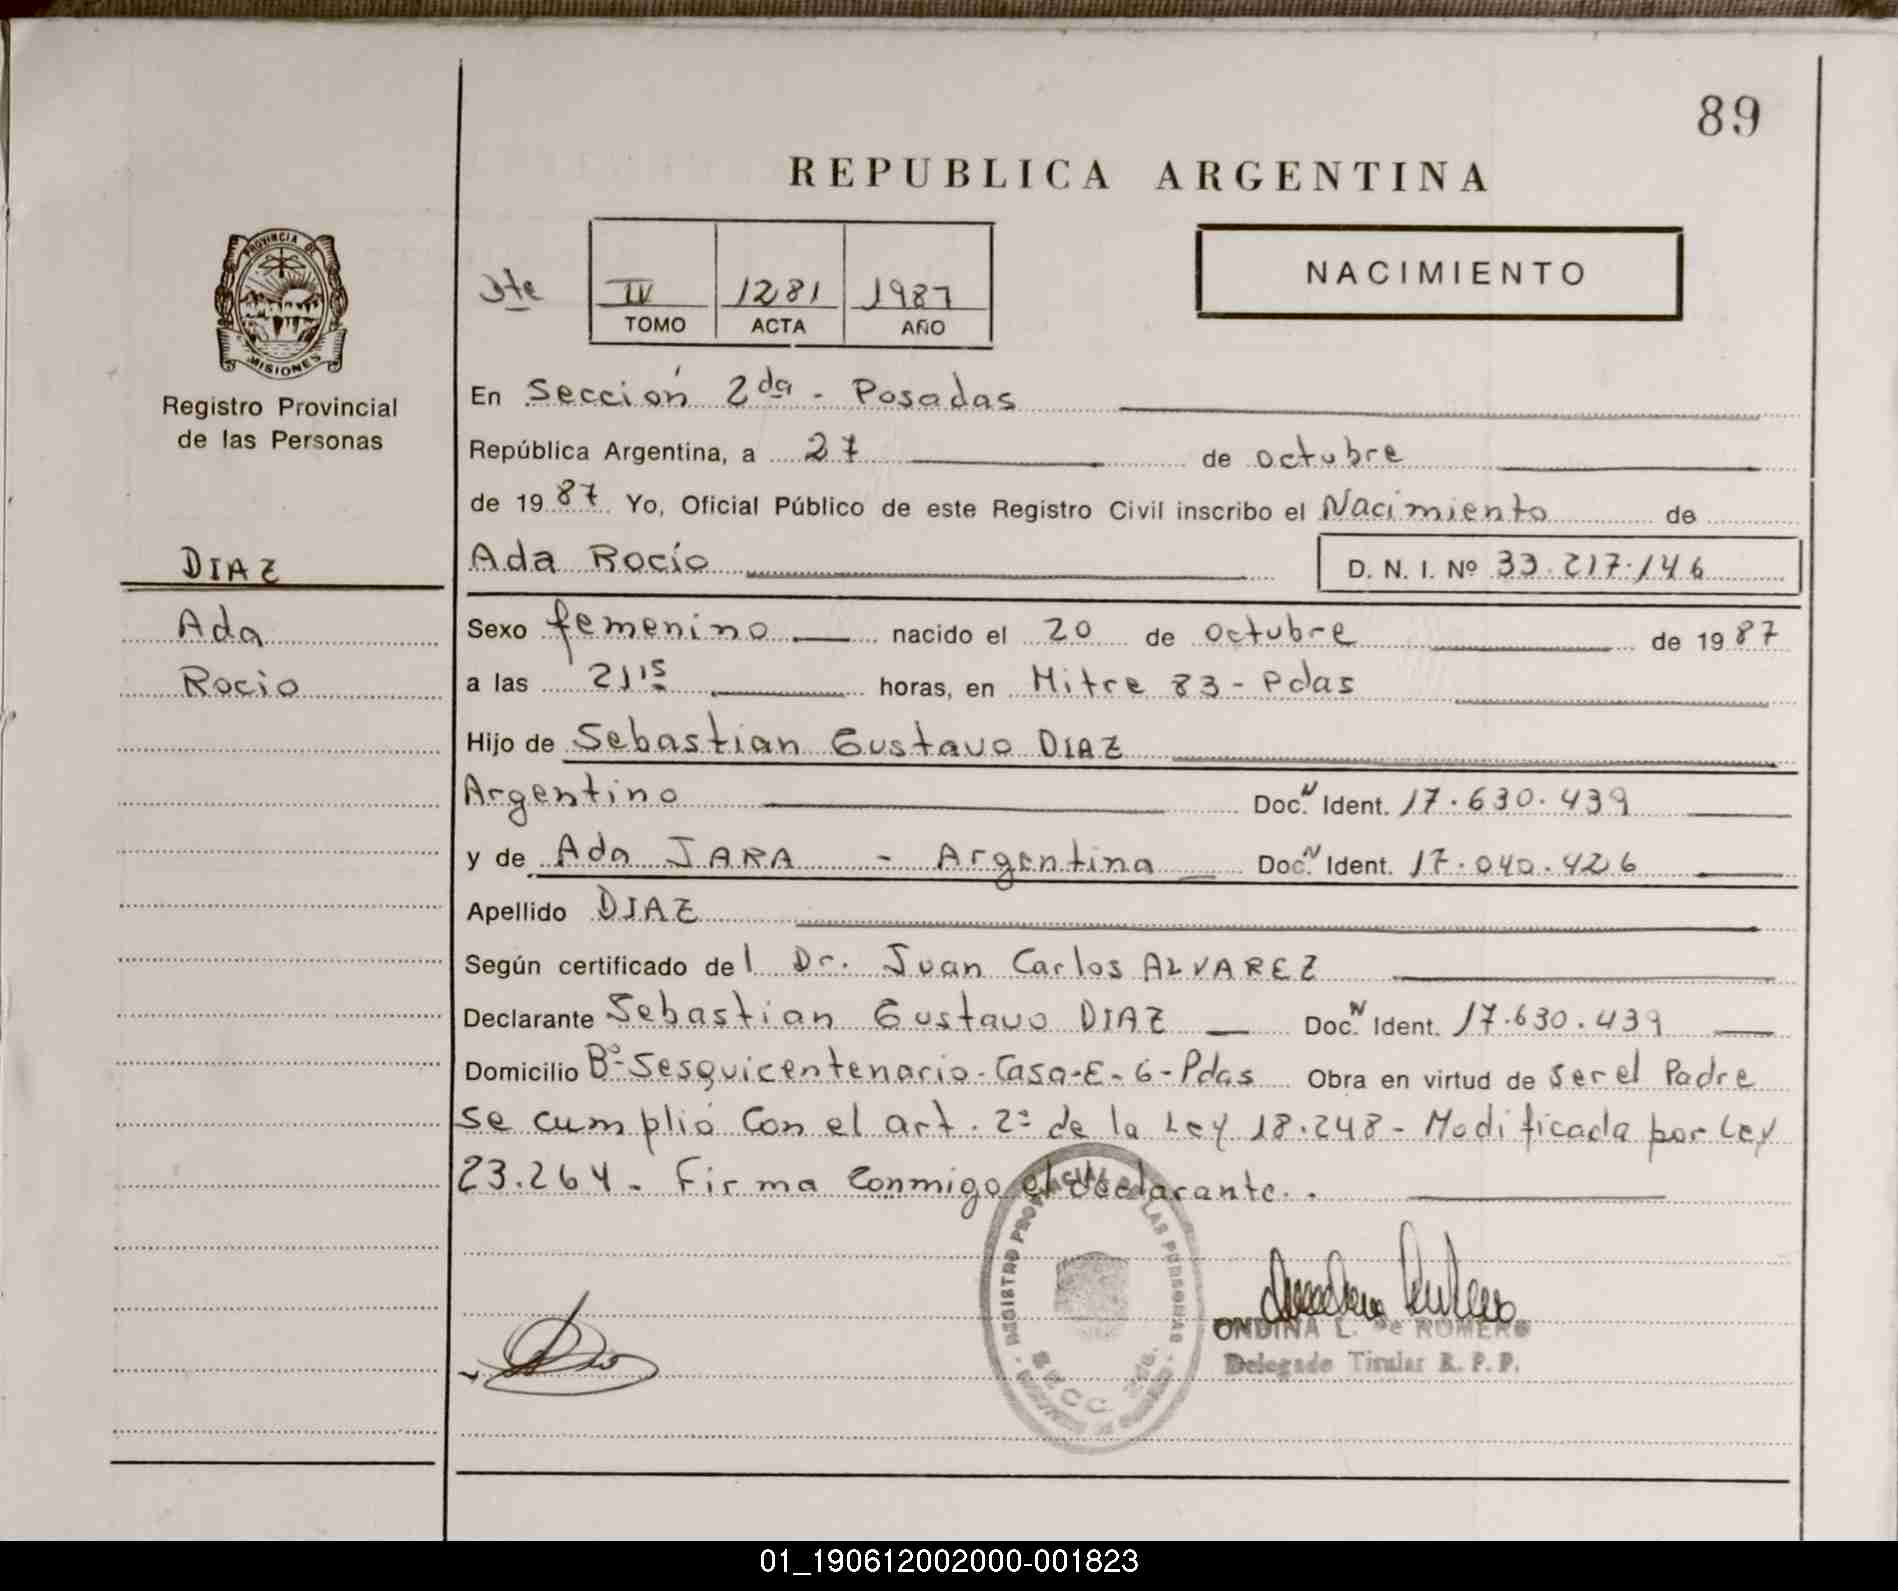 89
REPUBLICA ARGENTINA
PROVINCIA DE
MISIONES
Registro Provincial
de las Personas
Dte
IV 1281 1987
TOMO ACTA AÑO
NACIMIENTO
En Sección 2da - Posadas
República Argentina, a 27 de octubre
de 1987 Yo, Oficial Público de este Registro Civil inscribo el Nacimiento de
DIAZ
Ada Rocío D. N. I. Nº 33.217.146
Ada
Rocio
Sexo femenino nacido el 20 de octubre de 1987
a las 21 15 horas, en Mitre 83 - Pdas
Hijo de Sebastian Gustavo DIAZ
Argentino Doc. N Ident. 17.630.439
y de Ada JARA - Argentina Doc. N Ident. 17.040.426
Apellido DIAZ
Según certificado del Dr. Juan Carlos ALVAREZ
Declarante Sebastian Gustavo DIAZ Doc. N Ident. 17.630.439
Domicilio Bº Sesquicentenario - Casa-E-6-Pdas Obra en virtud de ser el Padre
se cumplió con el art. 2º de la Ley 18.248 - Modificada por Ley
23.264 - Firma conmigo el declarante.
REGISTRO PROVINCIAL DE LAS PERSONAS
SECC. 2da.
ONDINA L. de ROMERO
Delegado Titular R. P. P.
01_190612002000-001823